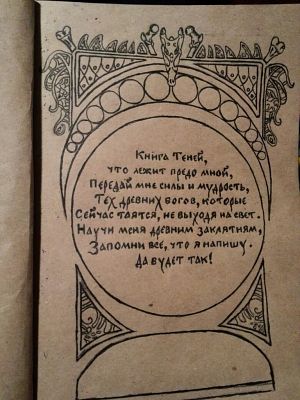 Книга Теней,
что лежит предо мной,
Передай мне силы и мудрость,
Тех древних богов, которые
Сейчас таятся, не выходя на свет.
Научи меня древним заклятиям,
Запомни все, что я напишу.
Да будет так!